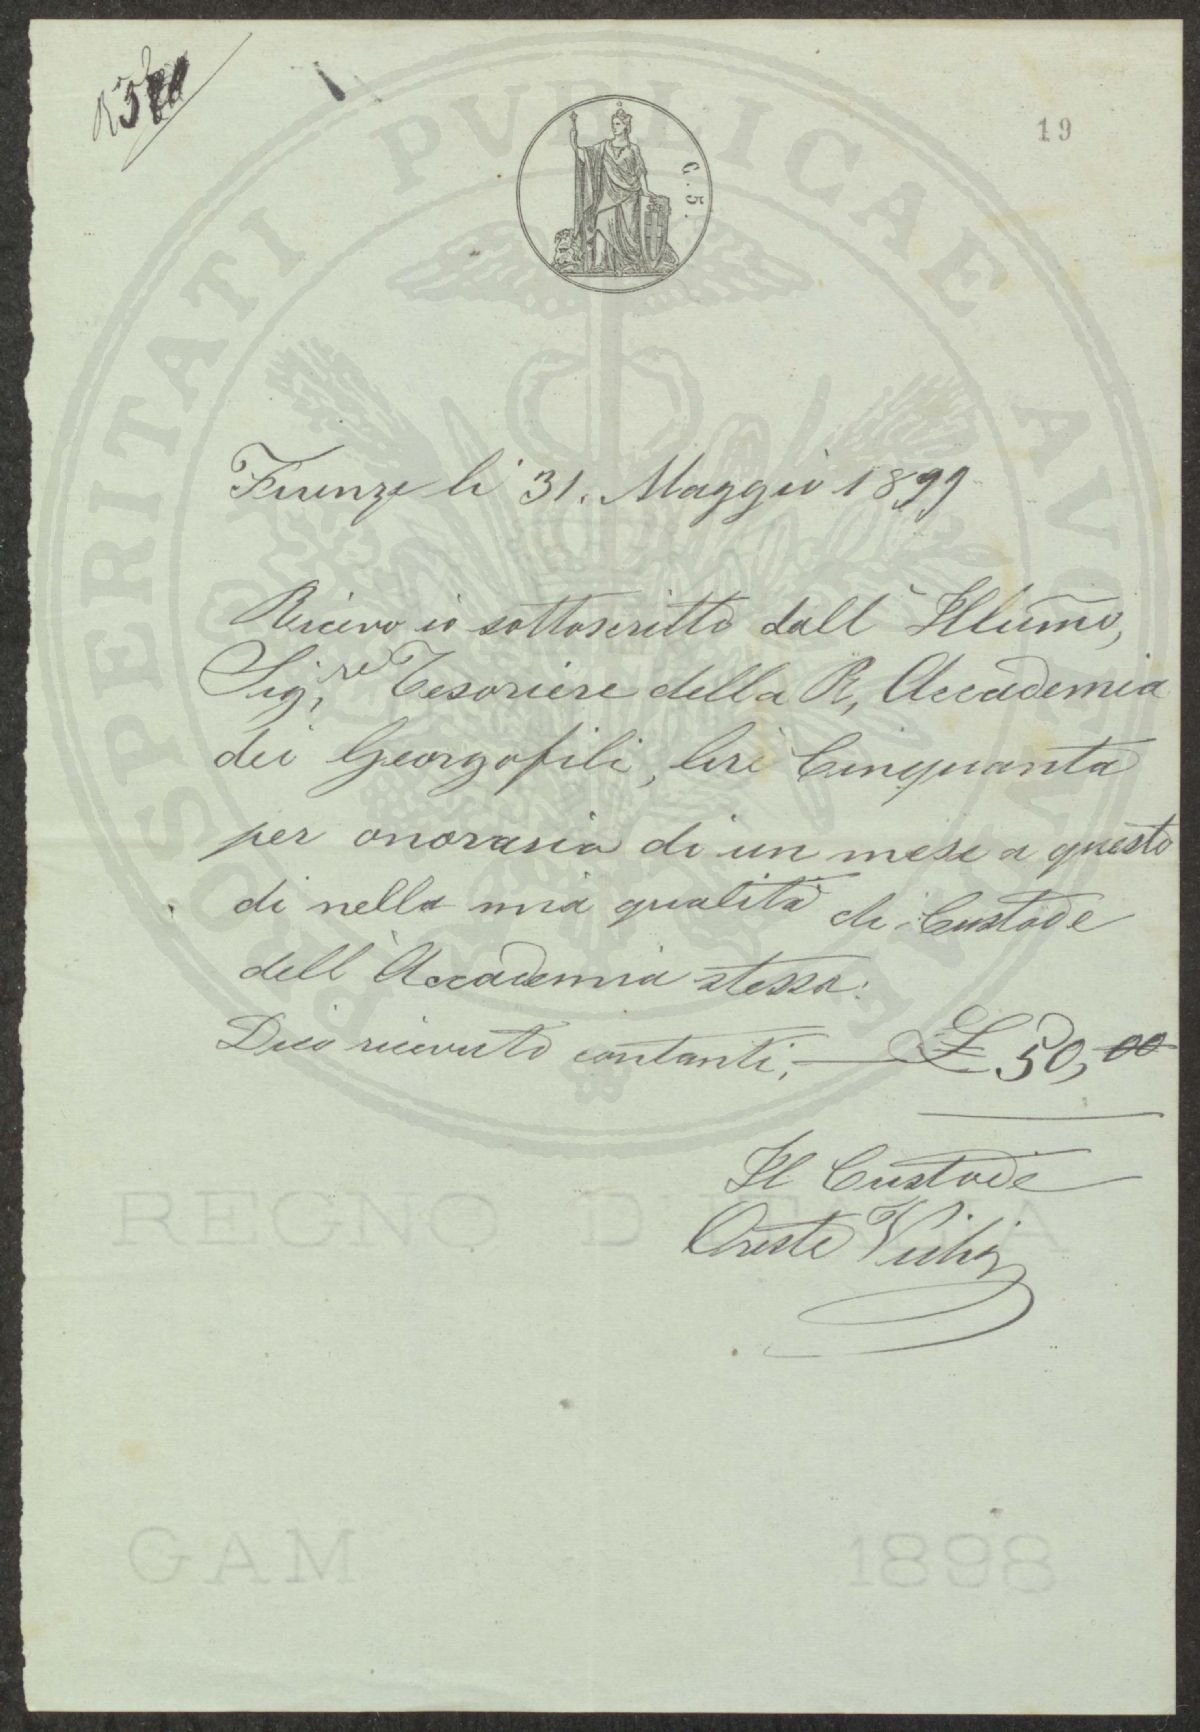 19
G. 5.
PROSPERITATI PVBLICAE AVGENDAE
Firenze li 31. Maggio 1899
Ricevo io sottoscritto dall' Illumo,
Sig.re Tesoriere della R, Accademia
dei Georgofili, lire Cinquanta
per onorario di un mese a questo
di nella mia qualità di Custode
dell' Accademia stessa.
Dico ricevuto contanti, — £ 50,00
Il Custode
Oreste
REGNO D'ITALIA
GAM 1898